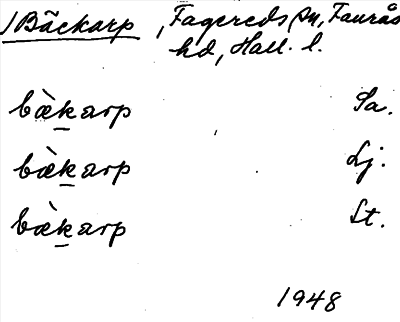 Bäckarp, Fagereds sn, Faurås
hd, Hall. l.
bæ̀k̲arp Sa.
bæ̀k̲arp Lj.
bæ̀k̲arp St.
1948